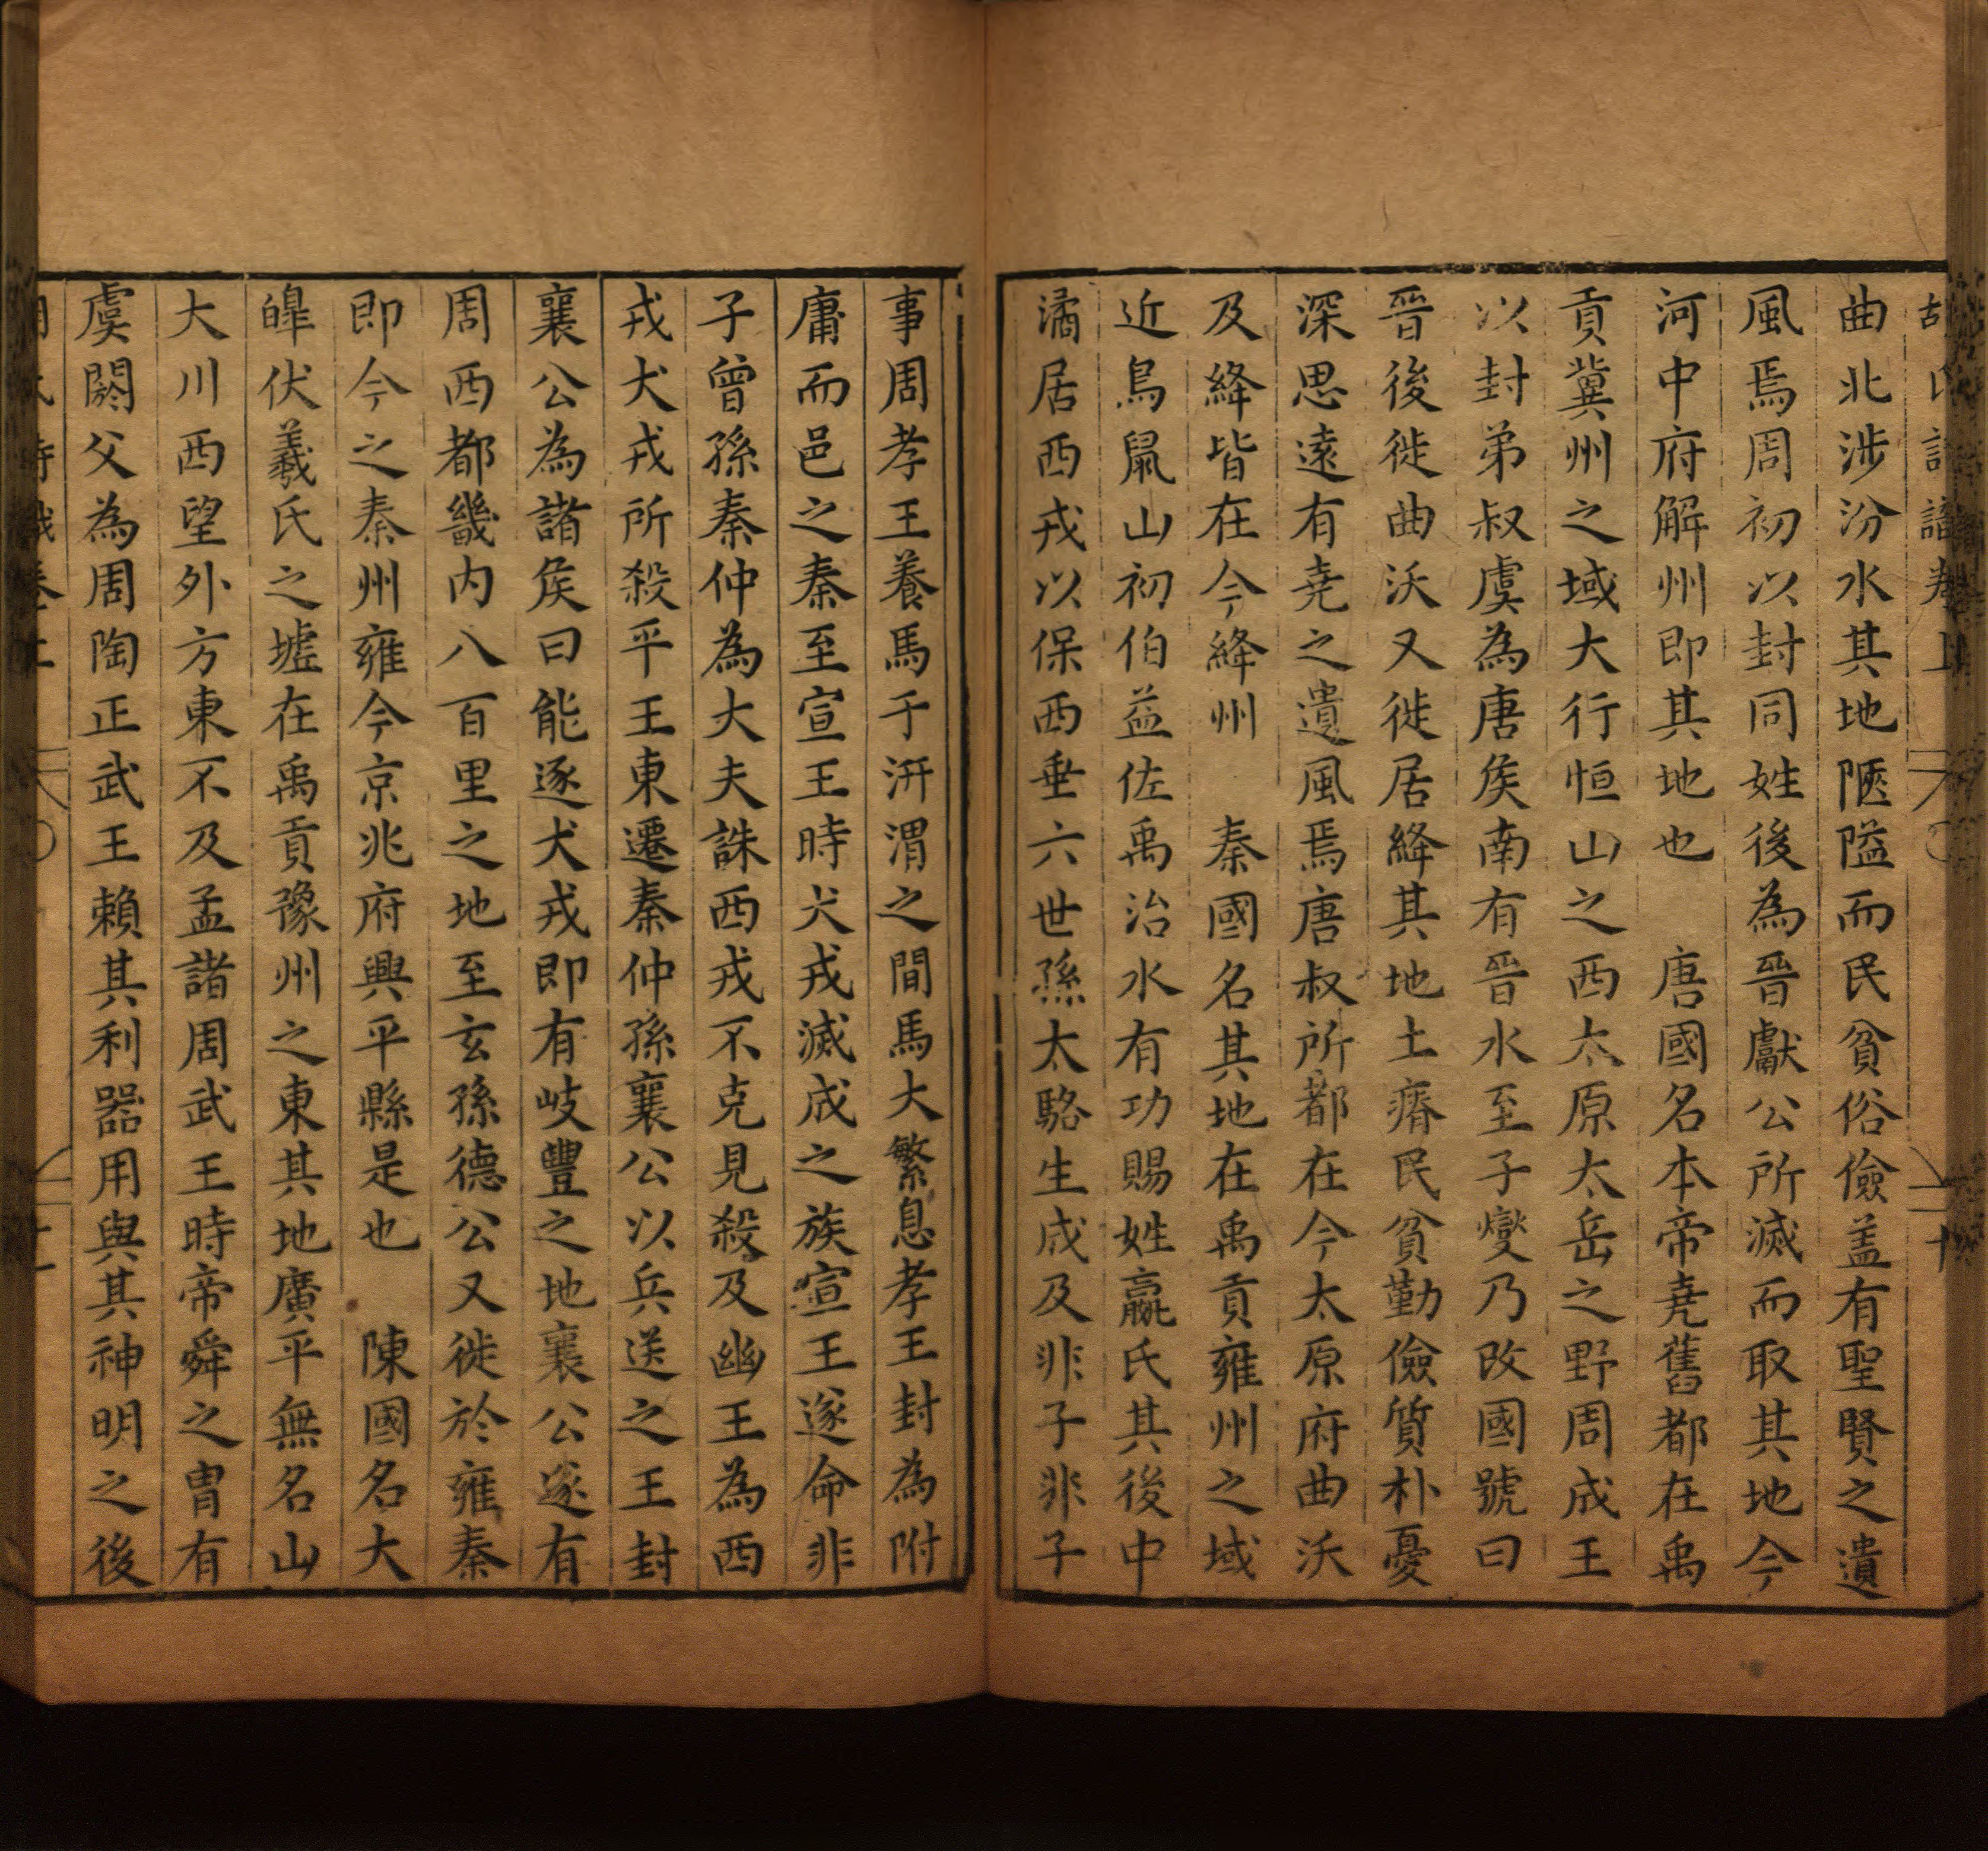 曲北涉汾水其地陿隘而民貧俗儉盖有聖賢之遺
風焉周初以封同姓後為晉獻公所滅而取其地今
河中府解州即其地也　唐國名本帝堯舊都在禹
貢冀州之域大行恒山之西太原太岳之野周成王
以封弟叔虞為唐侯南有晉水至子燮乃改國號曰
晉後徙曲沃又徙居絳其地土瘠民貧勤儉質朴憂
深思遠有堯之遺風焉唐叔所都在今太原府曲沃
及絳皆在今絳州　秦國名其地在禹貢雍州之域
近鳥鼠山初伯益佐禹治水有功賜姓嬴氏其後中
潏居西戎以保西垂六世孫太駱生成及非子非子
事周孝王養馬于汧渭之間馬大繁息孝王封為附
庸而邑之秦至宣王時犬戎滅成之族宣王遂命非
子曾孫秦仲為大夫誅西戎不克見殺及幽王為西
戎犬戎所殺平王東遷秦仲孫襄公以兵送之王封
襄公為諸侯曰能逐犬戎即有岐豐之地襄公遂有
周西都畿内八百里之地至玄孫德公又徙於雍秦
即今之秦州雍今京兆府興平縣是也　陳國名大
皥伏羲氏之墟在禹貢豫州之東其地廣平無名山
大川西望外方東不及孟諸周武王時帝舜之冑有
虞閼父為周陶正武王賴其利器用與其神明之後